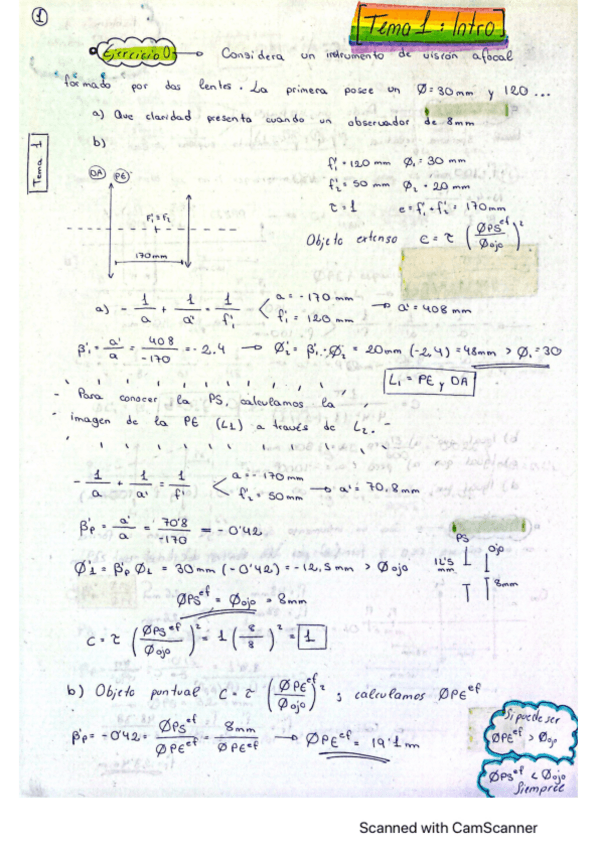 1
Tema 1: Intro
Ejercicio 0 → Considera un instrumento de visión afocal
formado por dos lentes. La primera posee un Ø=30mm y 120 ...
a) Que claridad presenta cuando un observador de 8mm
b)
Tema 1
DA PE
F₁'=F₂
170mm
f₁' = 120 mm Ø₁ = 30 mm
f₂' = 50 mm Ø₂ = 20 mm
τ = 1 e = f₁' + f₂' = 170mm
Objeto extenso C = τ (ØPS^ef / Øojo)²
a) - 1/a + 1/a' = 1/f₁' < a = -170 mm f₁' = 120 mm → a' = 408 mm
β₁' = a'/a = 408/-170 = -2.4 → Ø₂' = β₁'·Ø₂ = 20mm (-2,4) = 48mm > Ø₁ = 30
L₁ = PE y DA
- Para conocer la PS, calculamos la
imagen de la PE (L1) a través de L2. -
- 1/a + 1/a' = 1/f' < a = -170 mm f₂' = 50 mm → a' = 70,8 mm
β'p = a'/a = 70'8/-170 = -0'42
Ø'1 = β'p Ø1 = 30mm (-0'42) = -12,5mm > Øojo
PS ojo
12'5 mm 8mm
ØPS^ef = Øojo = 8mm
C = τ (ØPS^ef / Øojo)² = 1 (8/8)² = 1
b) Objeto puntual C = τ (ØPE^ef / Øojo)² ; calculamos ØPE^ef
β'p = -0'42 = ØPS^ef / ØPE^ef = 8mm / ØPE^ef → ØPE^ef = 19'1 m
Si puede ser
ØPE^ef > Øojo
ØPS^ef < Øojo
Siempre
Scanned with CamScanner